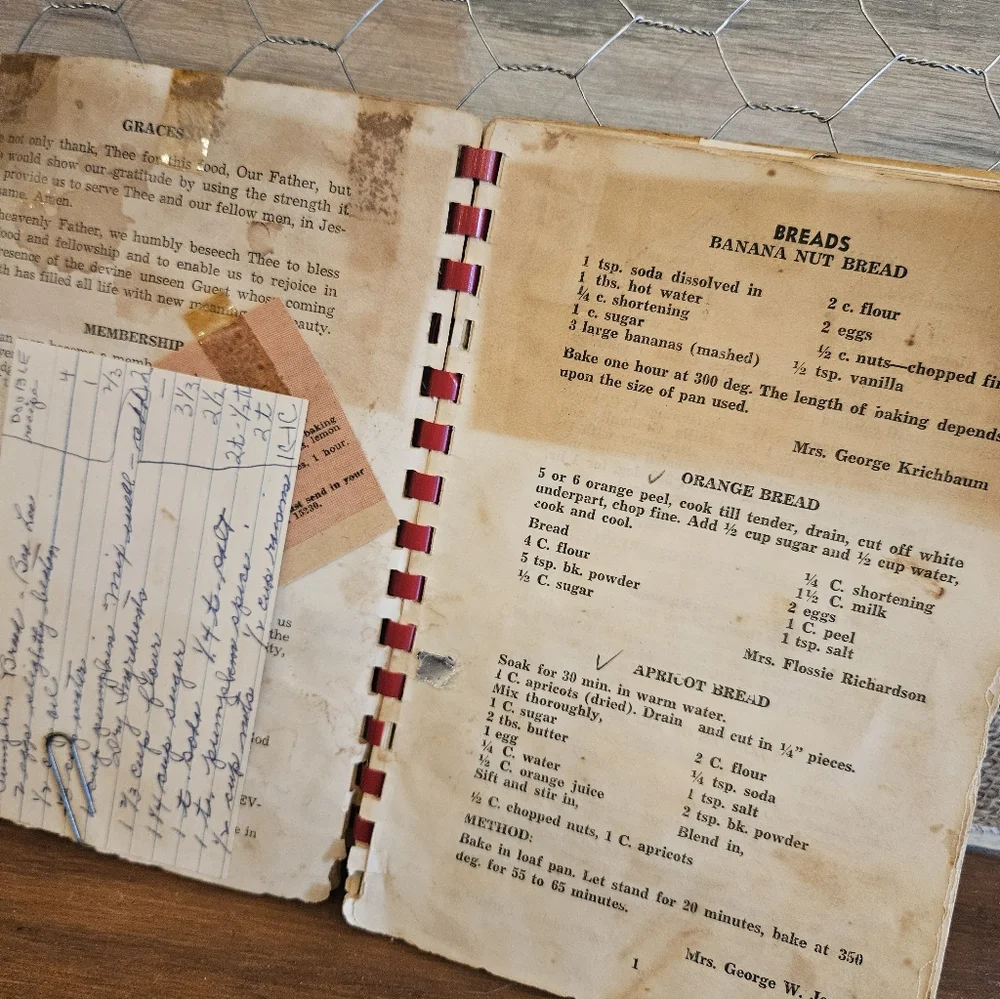 GRACES
not only thank, Thee for this food, Our Father, but
would show our gratitude by using the strength it
provide us to serve Thee and our fellow men, in Jes-
Amen.
heavenly Father, we humbly beseech Thee to bless
food and fellowship and to enable us to rejoice in
presence of the devine unseen Guest whose coming
has filled all life with new meaning
MEMBERSHIP
baking
lemon
1 hour.
send in your
15230.
us
the
EV-
in
Bread
DOUBLE
4
1/2 c oil
1
2/3
Dry Ingredients
1 2/3 cup flour
3 1/3
1 1/4 cup sugar
2 1/2
1 t soda 1/4 t salt
2t - 1/2t
1 tea pumpkin spice
2t
1/2 cup nuts 1/2 cup raisins
1C-1C
BREADS
BANANA NUT BREAD
1 tsp. soda dissolved in
1 tbs. hot water
¼ c. shortening
1 c. sugar
3 large bananas (mashed)
2 c. flour
2 eggs
½ c. nuts—chopped
½ tsp. vanilla
Bake one hour at 300 deg. The length of baking depends
upon the size of pan used.
Mrs. George Krichbaum
✓ ORANGE BREAD
5 or 6 orange peel, cook till tender, drain, cut off white
underpart, chop fine. Add ½ cup sugar and ½ cup water,
cook and cool.
Bread
4 C. flour
5 tsp. bk. powder
½ C. sugar
¼ C. shortening
1½ C. milk
2 eggs
1 C. peel
1 tsp. salt
Mrs. Flossie Richardson
✓ APRICOT BREAD
Soak for 30 min. in warm water.
1 C. apricots (dried). Drain and cut in ¼" pieces.
Mix thoroughly,
1 C. sugar
2 tbs. butter
1 egg
¼ C. water
½ C. orange juice
Sift and stir in,
2 C. flour
¼ tsp. soda
1 tsp. salt
2 tsp. bk. powder
Blend in,
½ C. chopped nuts, 1 C. apricots
METHOD:
Bake in loaf pan. Let stand for 20 minutes, bake at 350
deg. for 55 to 65 minutes.
Mrs. George W.
1